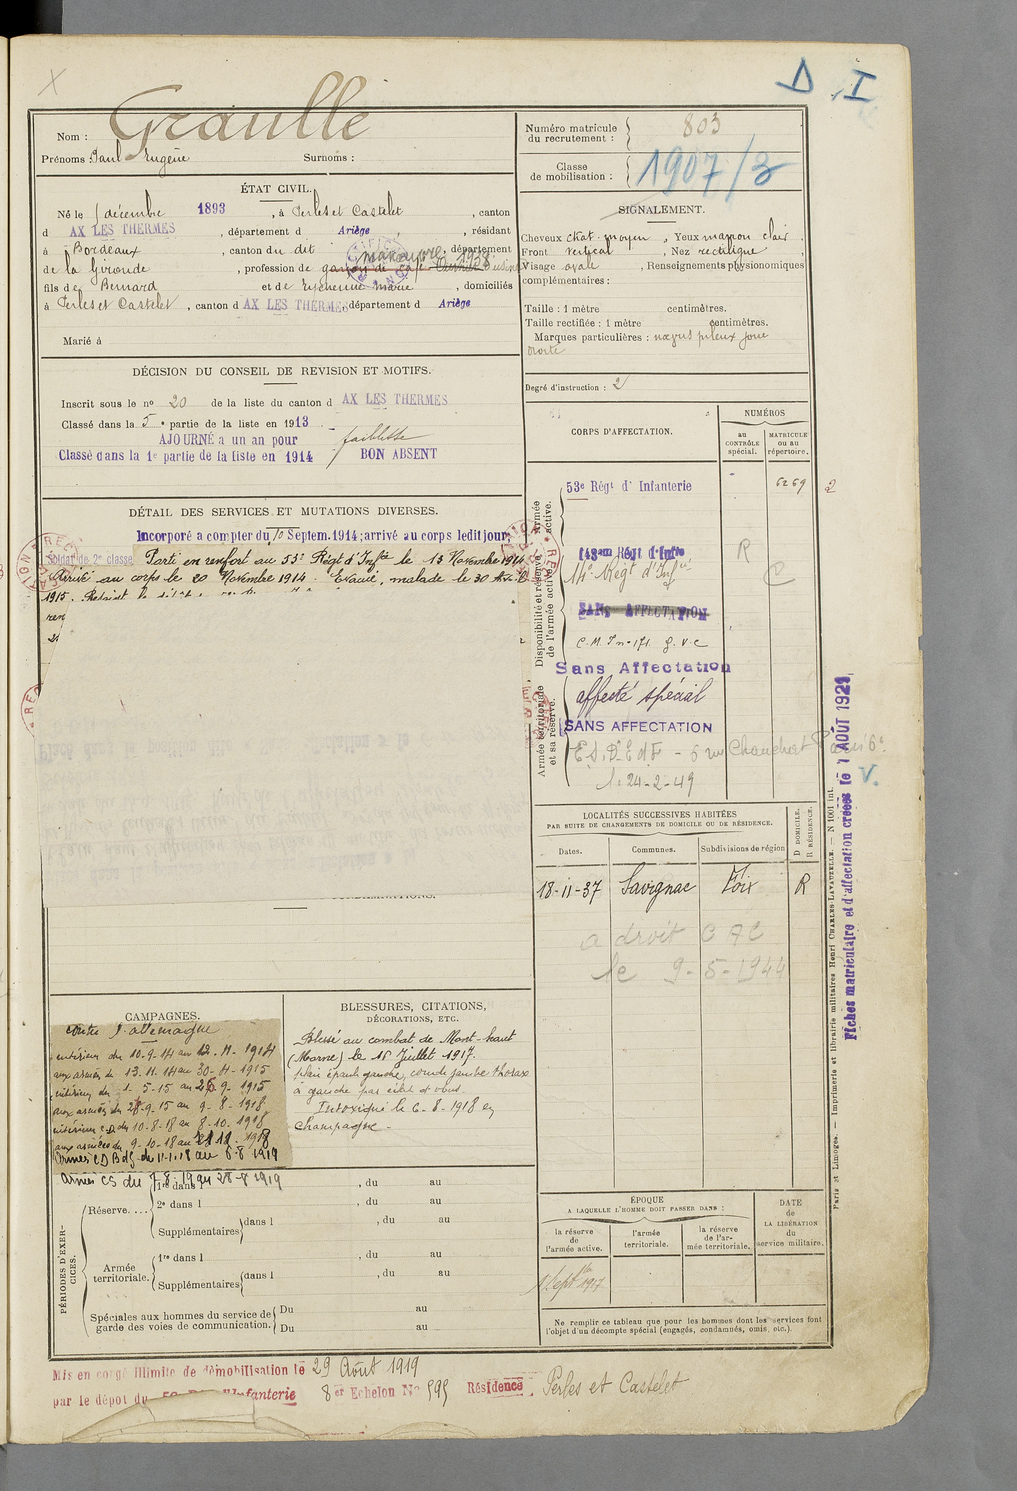 D I
Nom : Graulle
Prénoms : Paul Eugène Surnoms :
Numéro matricule du recrutement : 803
Classe de mobilisation : 1907/3
ÉTAT CIVIL.
Né le décembre 1893, à Perles et Castelet, canton
d AX LES THERMES, département d Ariège, résidant
à Bordeaux, canton du dit, département
de la Gironde, profession de garçon de café manœuvre 1928
fils de Bernard et de Eychenne Marie, domiciliés
à Perles et Castelet, canton d AX LES THERMES département d Ariège
Marié à
SIGNALEMENT.
Cheveux chat. moyen, Yeux marron clair
Front vertical, Nez rectiligne,
Visage ovale, Renseignements physionomiques
complémentaires :
Taille : 1 mètre centimètres.
Taille rectifiée : 1 mètre centimètres.
Marques particulières : nævus pileux joue
droite
Degré d'instruction : 2
DÉCISION DU CONSEIL DE REVISION ET MOTIFS.
Inscrit sous le no 20 de la liste du canton d AX LES THERMES
Classé dans la 5e partie de la liste en 1913
AJOURNÉ a un an pour faiblesse
Classé dans la 1e partie de la liste en 1914 BON ABSENT
CORPS D'AFFECTATION.
NUMÉROS
au CONTRÔLE spécial.
MATRICULE ou au répertoire.
Armée active.
53e Régt d' Infanterie 6269 2
Disponibilité et réserve de l'armée active.
143ème Régt d'Infie R
14e Régt d'Infie
SANS AFFECTATION
C.M. In-171 g.v.c
Sans Affectation
Armée territoriale et sa réserve.
affecté spécial
SANS AFFECTATION
E.S.D. EdF - 5 rue Chauchat Paris
le 24-2-49
V.
DÉTAIL DES SERVICES ET MUTATIONS DIVERSES.
Incorporé a compter du 10 Septem. 1914; arrivé au corps ledit jour
Soldat de 2e classe Parti en renfort au 53e Régt d'Infie le 13 Novembre 1914
Arrivé au corps le 20 Novembre 1914. Evacué, malade le 30 Avril
1915.
LOCALITÉS SUCCESSIVES HABITÉES
PAR SUITE DE CHANGEMENTS DE DOMICILE OU DE RÉSIDENCE.
Dates. Communes. Subdivisions de région D DOMICILE. R RÉSIDENCE.
18-11-37 Savignac Foix R
a droit C A C
le 9-5-1944
CAMPAGNES.
contre l'allemagne
intérieur du 10-9-14 au 12-11-1914
aux armées du 13-11-14 au 30-4-1915
intérieur du 1-5-15 au 9-1915
aux armées du 9-15 au 9-8-1918
intérieur CD du 10-8-18 au 8-10-1918
aux armées du 9-10-18 au 11-1918
Armées CD Bdg du au 6 8 1919
Armées CS du 7 8 19 au 28-8 1919
BLESSURES, CITATIONS,
DÉCORATIONS, ETC.
Blessé au combat de Mont-haut
(Marne) le 15 Juillet 1917.
plaie épaule gauche, coude jambe thorax
à gauche par éclat d'obus
Intoxiqué le 6-8-1918 en
champagne.
PÉRIODES D'EXERCICES.
Réserve....
1re dans l , du au
2e dans l , du au
Supplémentaires dans l , du au
Armée territoriale.
1re dans l , du au
Supplémentaires dans l , du au
Spéciales aux hommes du service de garde des voies de communication.
Du au
Du au
ÉPOQUE
A LAQUELLE L'HOMME DOIT PASSER DANS :
la réserve de l'armée active.
l'armée territoriale.
la réserve de l'armée territoriale.
DATE de LA LIBÉRATION du service militaire.
Septbre 1917
Ne remplir ce tableau que pour les hommes dont les services font
l'objet d'un décompte spécial (engagés, condamnés, omis, etc.).
Mis en congé illimité de démobilisation le 29 Août 1919
par le dépôt du d'Infanterie 8er Echelon No 595 Résidence Perles et Castelet
Paris et Limoges. — Imprimerie et librairie militaires Henri CHARLES-LAVAUZELLE. — N 1001 int.
Fiches matriculaire et d'affectation créées le 1 AOÛT 1921